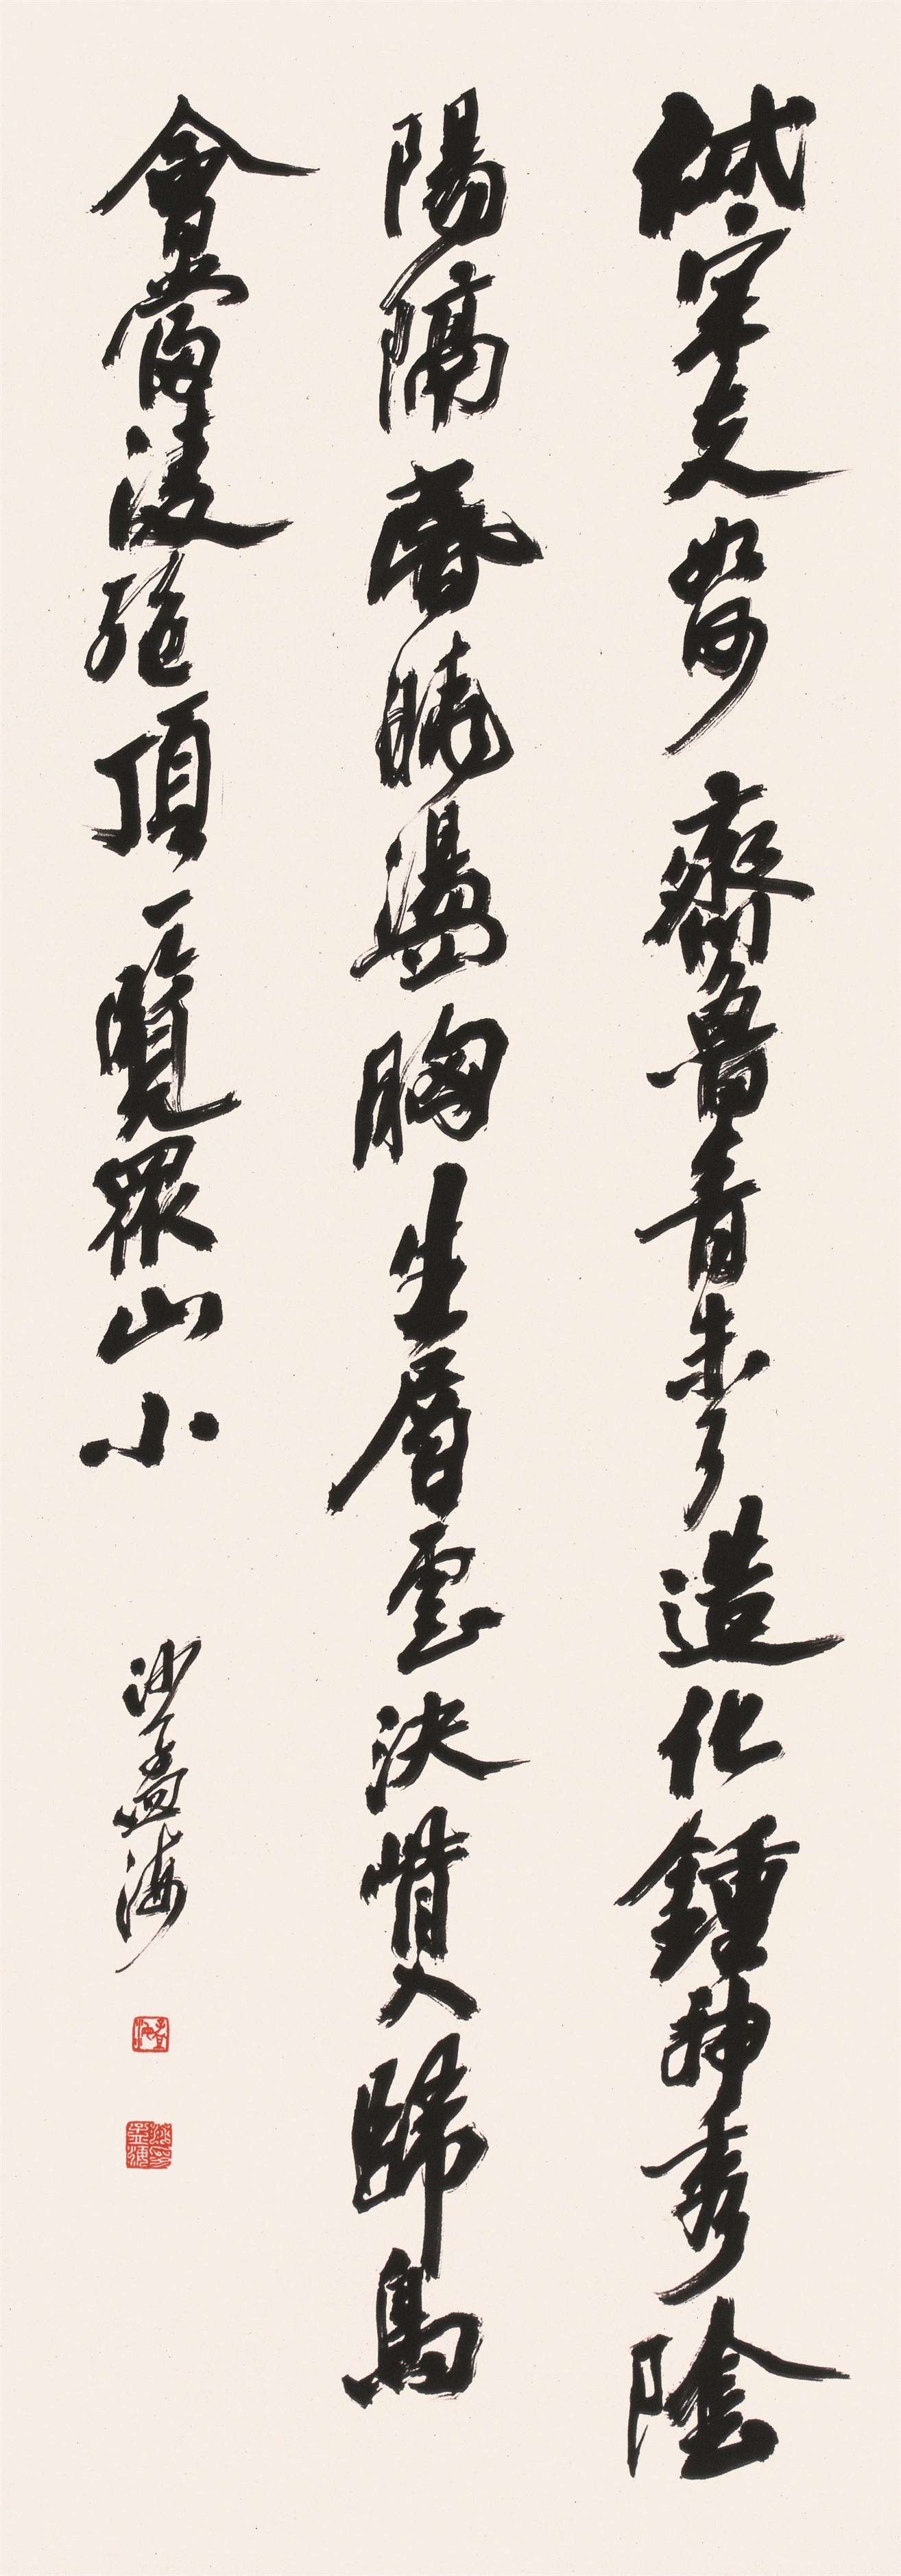 岱宗夫如何齊魯青未了造化鍾神秀陰
陽隔昏曉盪胸生層雲決眥入歸鳥
會當淩絕頂一覽眾山小
沙孟海